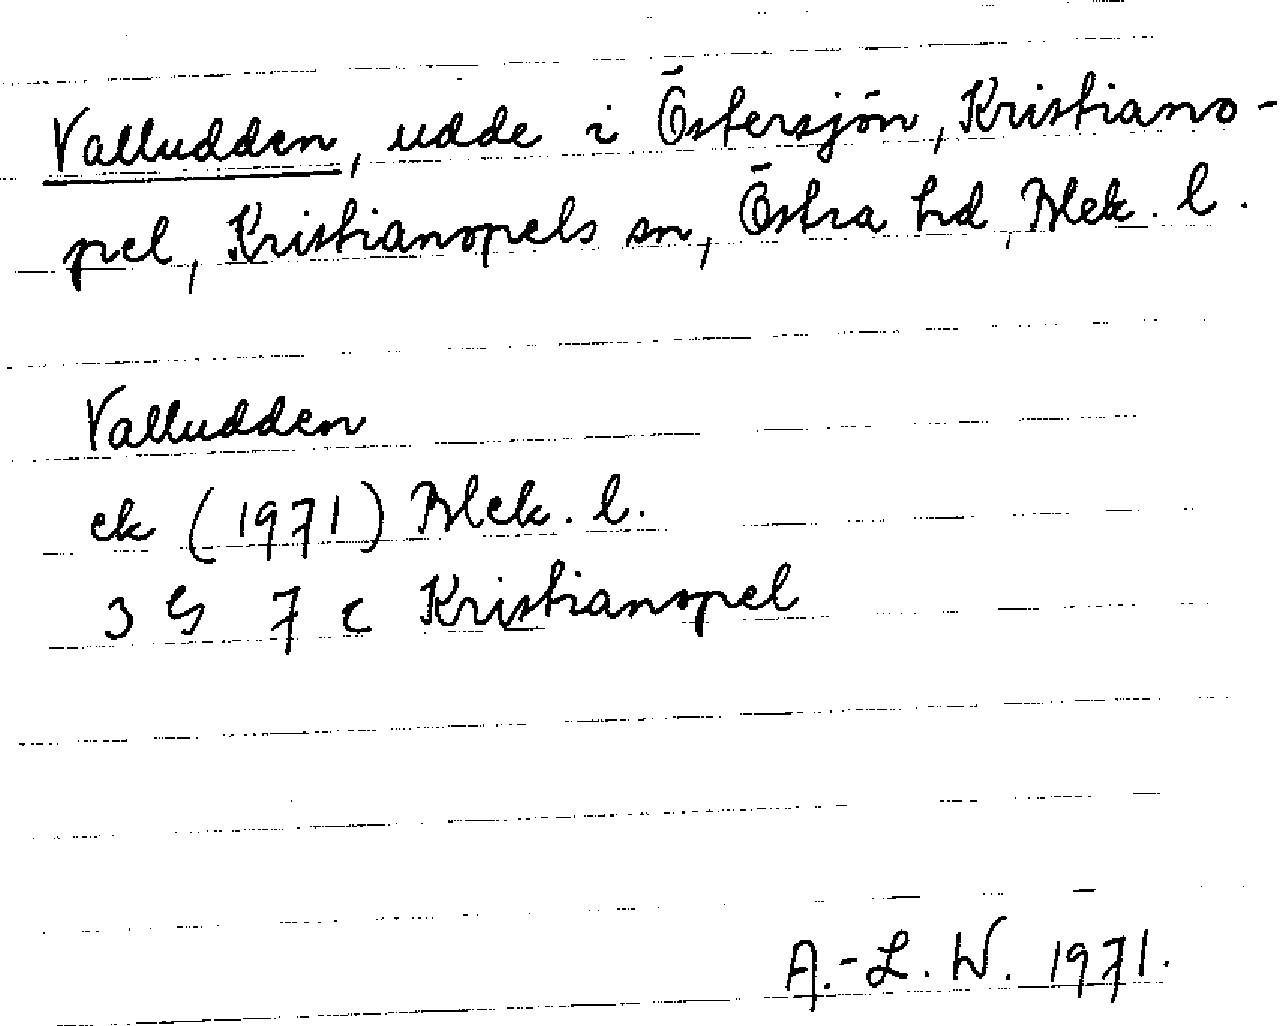 Valludden, udde i Östersjön, Kristiano-
pel, Kristianopels sn, Östra hd, Blek. l.
Valludden
ek (1971) Blek. l.
3 G 7 c Kristianopel
A.-L. W. 1971.